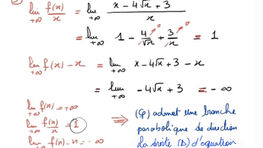 lim f(x)/x = lim (x - 4√x + 3)/x
+∞ +∞
= lim 1 - 4/√x + 3/x = 1
+∞
lim f(x) - x = lim x - 4√x + 3 - x
+∞ +∞
= lim -4√x + 3 = -∞
+∞
lim f(x) = +∞
+∞
lim f(x)/x = 1 ⇒ (φ) admet une branche
+∞ parabolique de direction
lim f(x) - x = -∞ la droite (D) d'équation
+∞